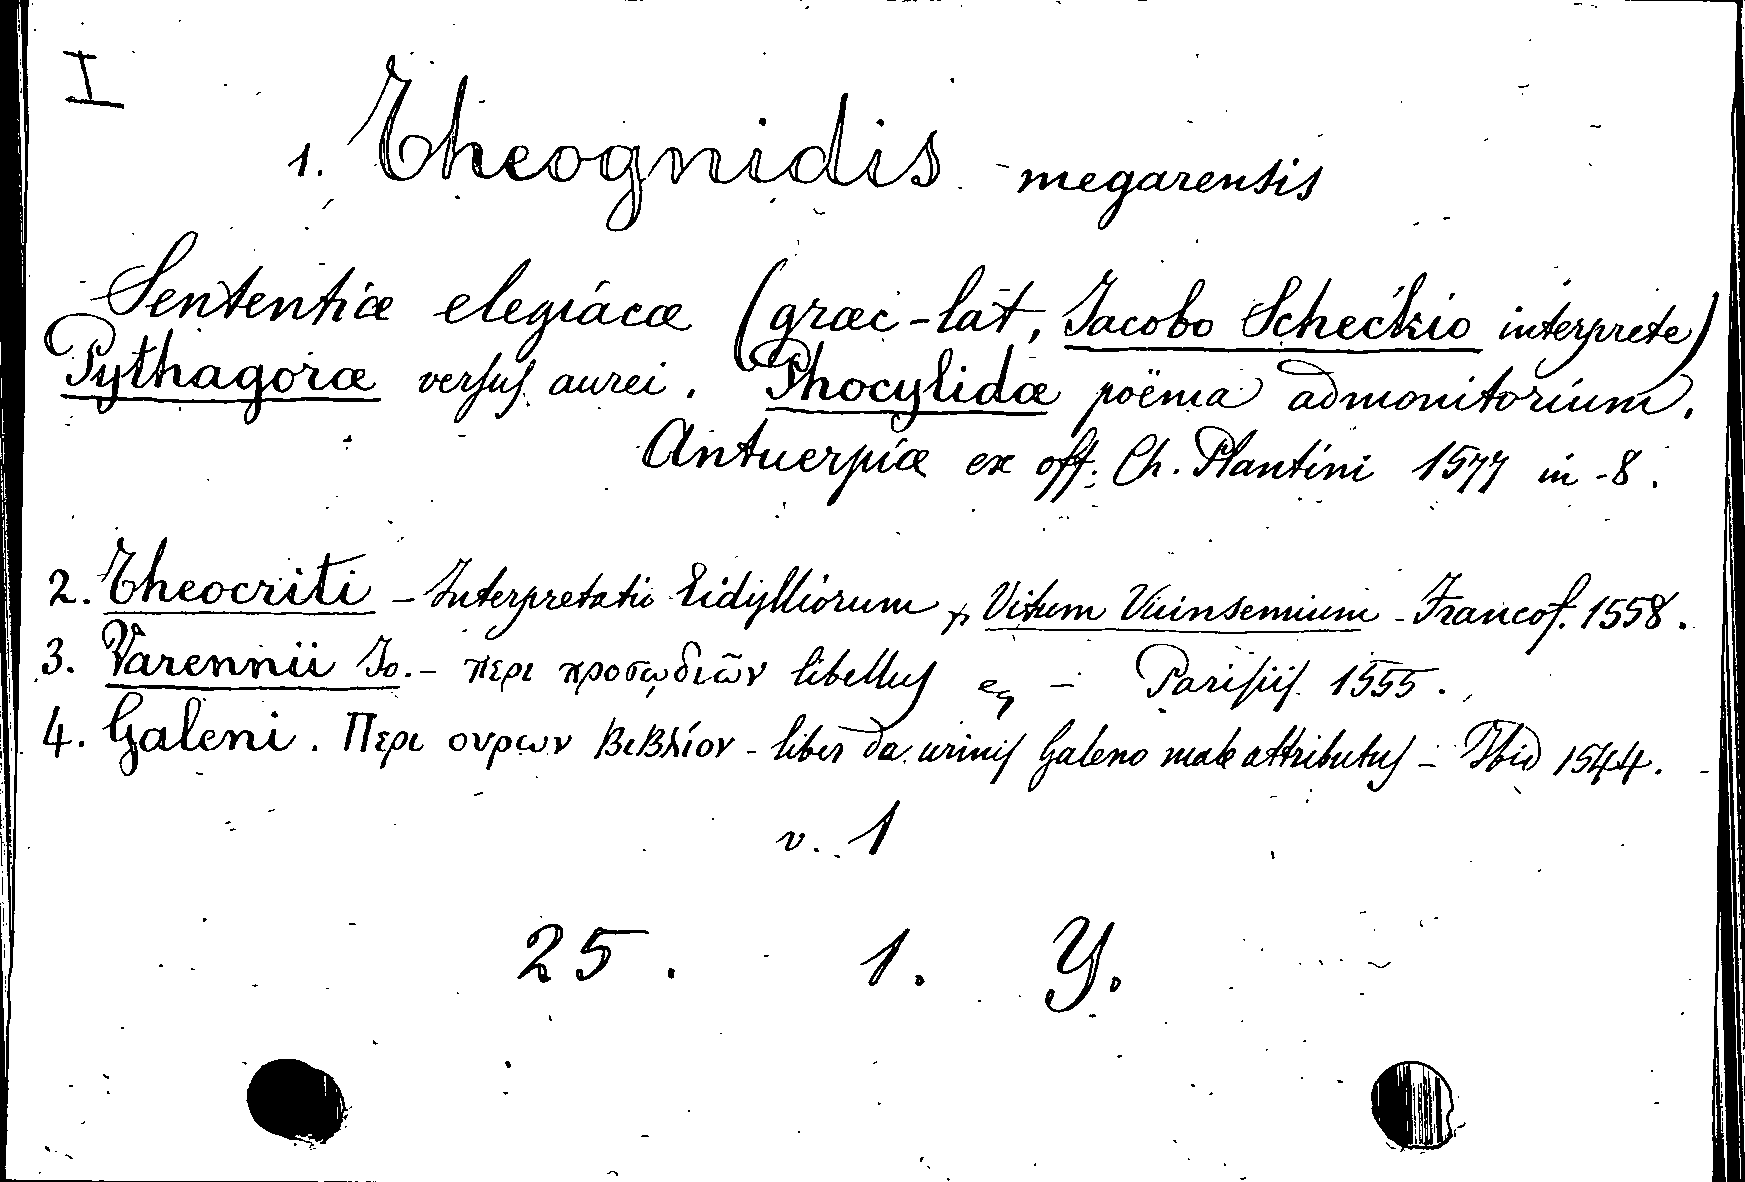 I
1. Theognidis megarensis
Sententiæ elegiacæ (græc-lat, Jacobo Scheckio interprete)
Pythagoræ versus aurei. Phocylidæ poëma admonitorium.
Antuerpiæ ex off. Ch. Plantini 1577 in-8.
2. Theocriti - Interpretatio Eidylliorum p Vitum Vuinsemium - Francof. 1558.
3. Varennii Jo. - περι προσῳδιῶν libellus - Parisiis 1555.
4. Galeni. Περι ουρων Βιβλίον - liber de urinis Galeno male attributus - Ibid 1544.
v. 1
25. 1. Y.